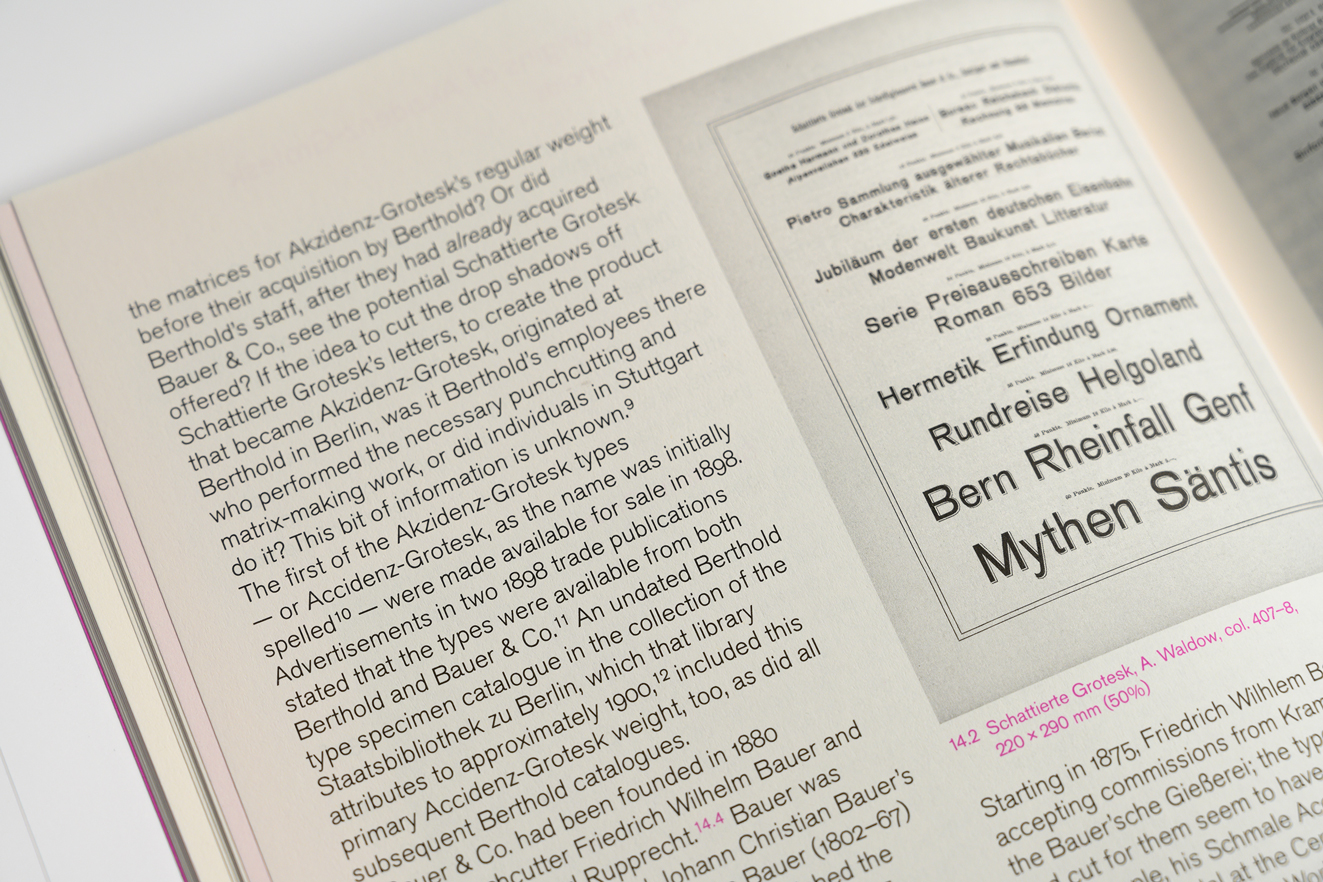 the matrices for Akzidenz-Grotesk's regular weight
before their acquisition by Berthold? Or did
Berthold's staff, after they had already acquired
Bauer & Co., see the potential Schattierte Grotesk
offered? If the idea to cut the drop shadows off
Schattierte Grotesk's letters, to create the product
that became Akzidenz-Grotesk, originated at
Berthold in Berlin, was it Berthold's employees there
who performed the necessary punchcutting and
matrix-making work, or did individuals in Stuttgart
do it? This bit of information is unknown.⁹
The first of the Akzidenz-Grotesk types
— or Accidenz-Grotesk, as the name was initially
spelled¹⁰ — were made available for sale in 1898.
Advertisements in two 1898 trade publications
stated that the types were available from both
Berthold and Bauer & Co.¹¹ An undated Berthold
type specimen catalogue in the collection of the
Staatsbibliothek zu Berlin, which that library
attributes to approximately 1900,¹² included this
primary Accidenz-Grotesk weight, too, as did all
subsequent Berthold catalogues.
& Co. had been founded in 1880
Friedrich Wilhelm Bauer and
Rupprecht.14.4 Bauer was
Johann Christian Bauer's
Bauer (1802–67)
the
Goethe Hermann und Dorothea Heine
Alpenveilchen 280 Edelweiss
Pietro Sammlung ausgewählter Musikalien Berlin
Charakteristik älterer Rechtsbücher
Jubiläum der ersten deutschen Eisenbahn
Modenwelt Baukunst Litteratur
Serie Preisausschreiben Karte
Roman 653 Bilder
Hermetik Erfindung Ornament
Rundreise Helgoland
Bern Rheinfall Genf
Mythen Säntis
14.2 Schattierte Grotesk, A. Waldow, col. 407–8,
220 × 290 mm (50%)
Starting in 1875, Friedrich Wilhlem
accepting commissions from
the Bauer'sche Gießerei; the
cut for them seem to have
his Schmale
at the